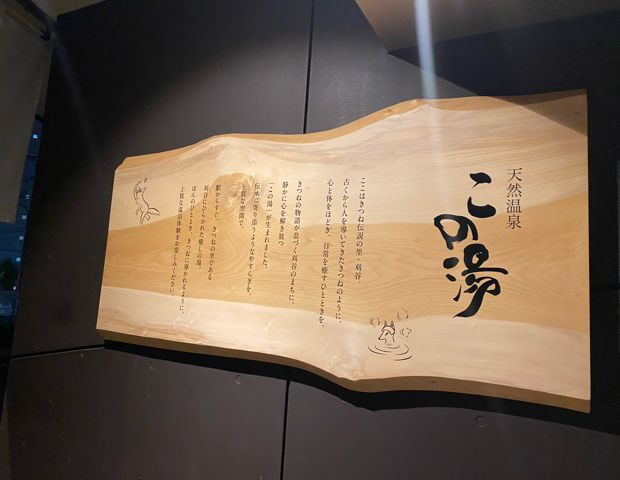 天然温泉
この湯
ここはきつね伝説の里・刈谷。
古くから人を導いてきたきつねのように、
心と体をほどき、日常を癒すひとときを。
きつねの物語が息づく刈谷のまちに、
静かに心を解き放つ
「この湯」が生まれました。
伝承に寄り添うようなやすらぎを、
上質な空間で。
駅からすぐ、きつねの里である
刈谷にひらかれた癒しの湯。
ほんのひととき、きつねに導かれるように、
上質な湯浴体験をお楽しみください。